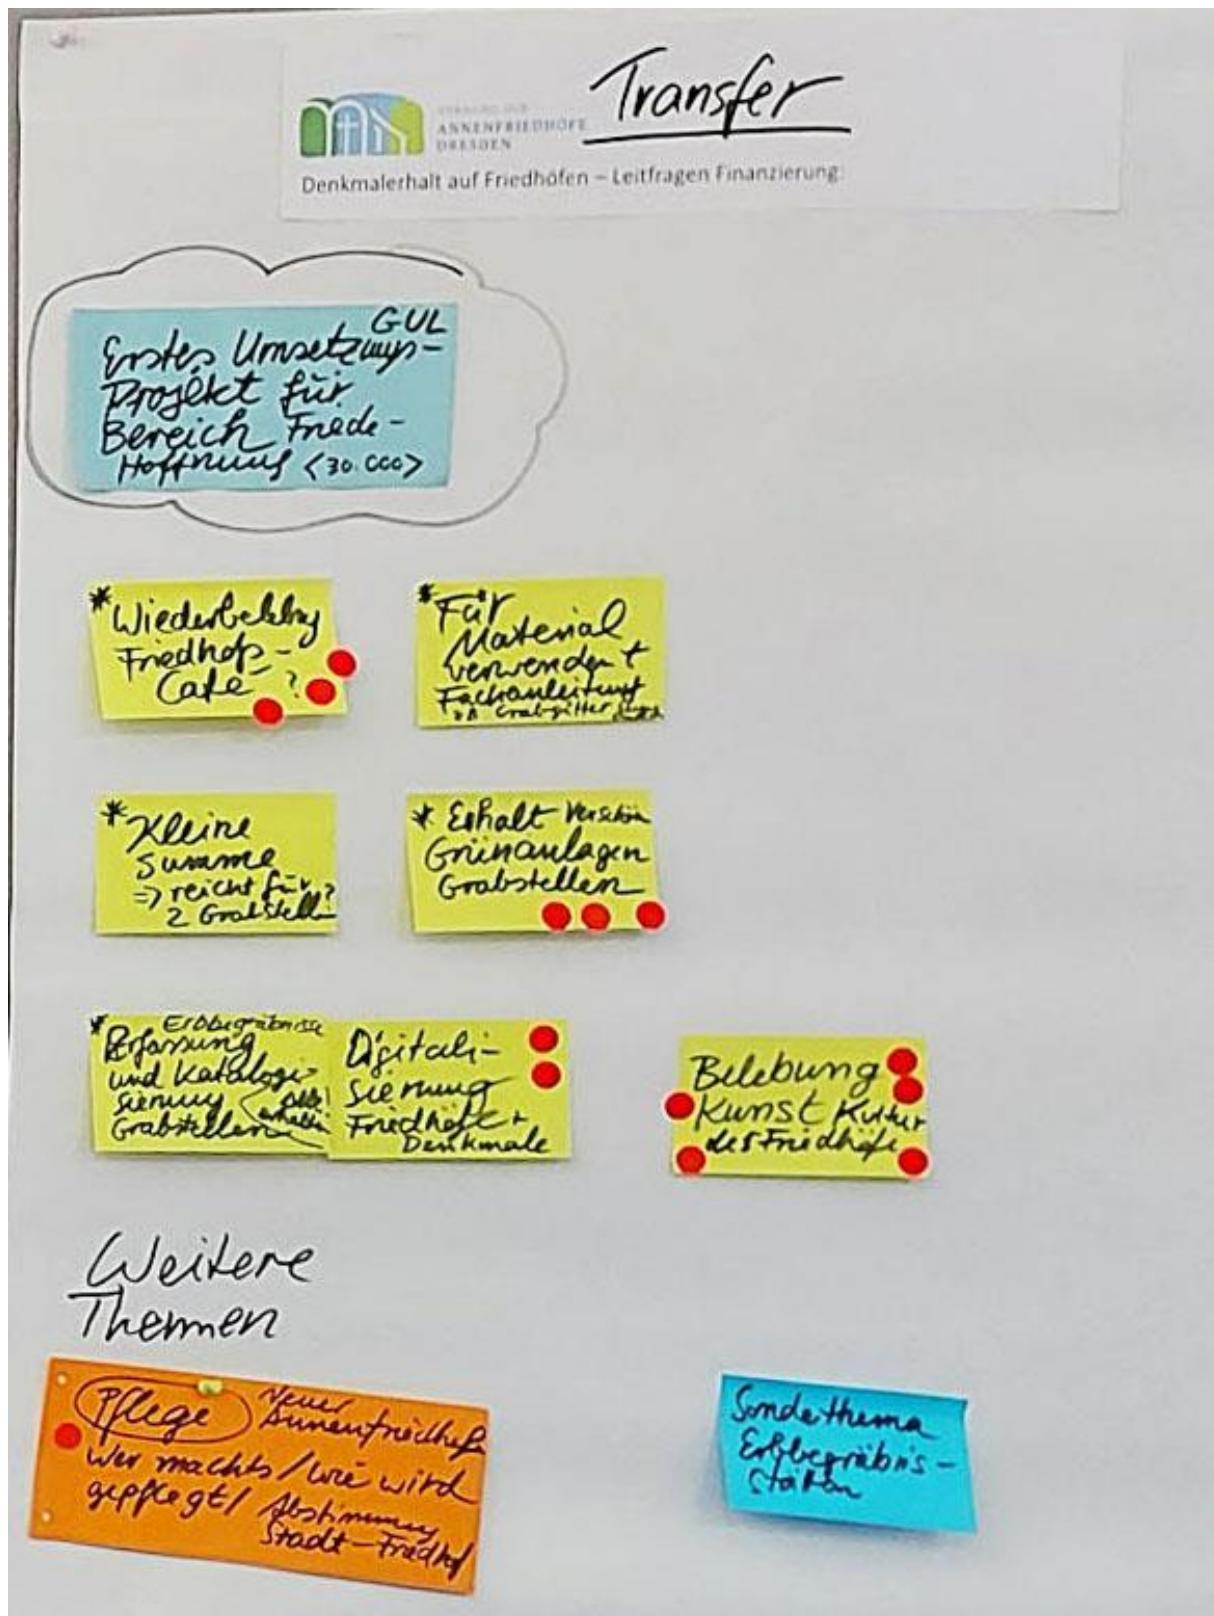 Transfer
ANNENFRIEDHÖFE
DRESDEN
Denkmalerhalt auf Friedhöfen – Leitfragen Finanzierung:
GUL
Erstes Umsetzungs-
Projekt für
Bereich Friede-
Hoffnung <30.000>
* Wiederbelebung
Friedhofs-
Cafe ?
* Für
Material
verwenden +
Fachanleitung
Grabgitter
* Kleine
Summe
=> reicht für ?
2 Grabstellen
* Erhalt Verschön
Grünanlagen
Grabstellen
* Erbbegräbnisse
Erfassung
und Katalogi-
sierung
Grabstellen
Digitali-
sierung
Friedhöfe +
Denkmale
Belebung
Kunst Kultur
des Friedhöfe
Weitere
Themen
Pflege Neuer
Annenfriedhof
Wer machts / wie wird
gepflegt / Abstimmung
Stadt – Friedhof
Sonderthema
Erbbegräbnis-
stätten